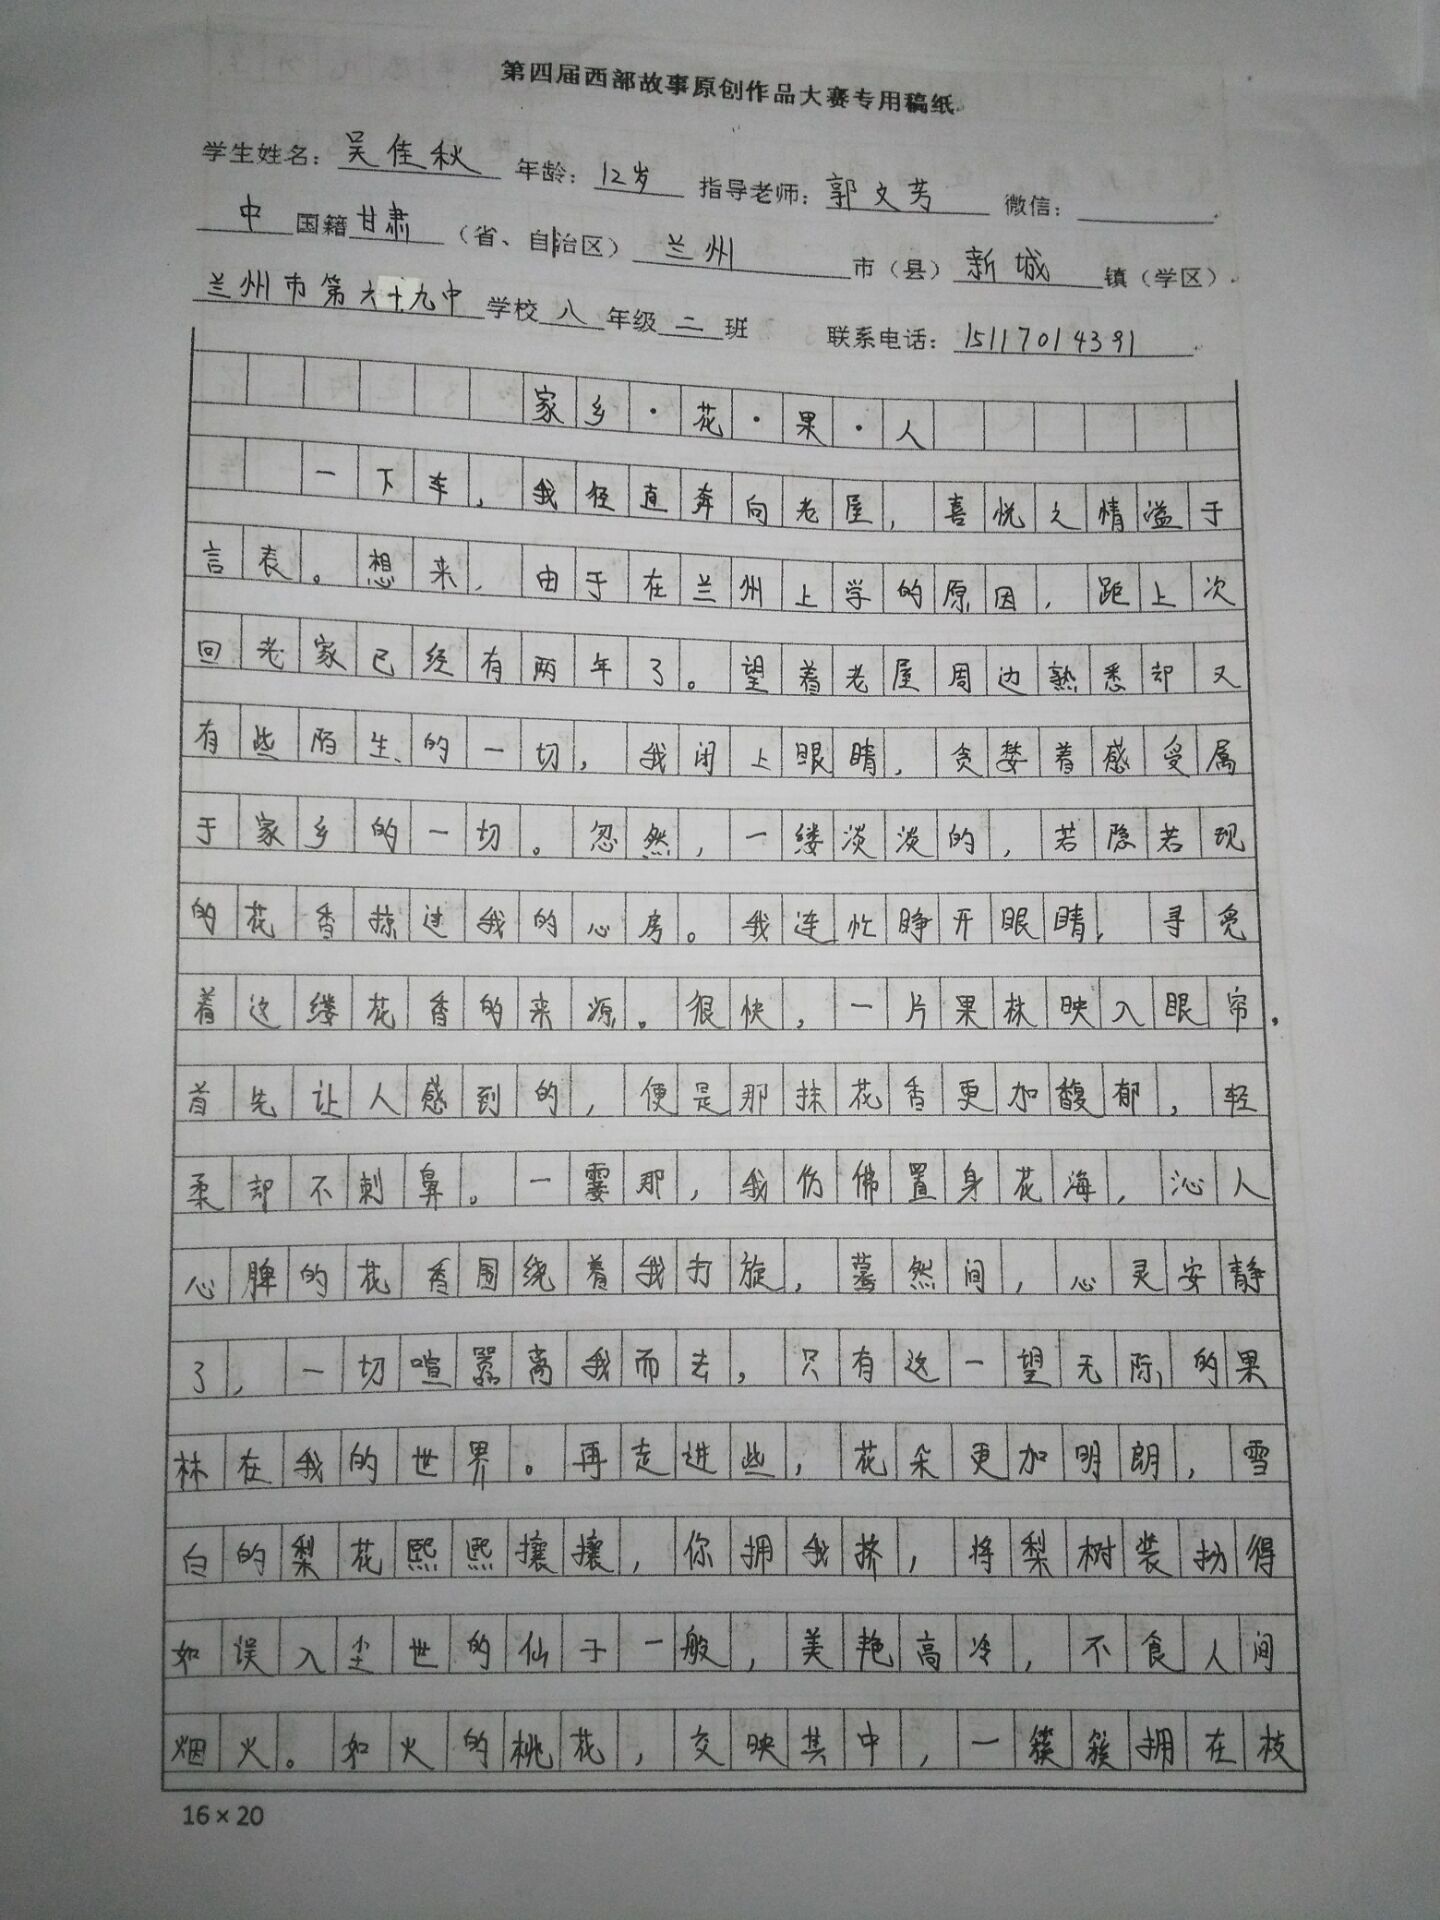 第四届西部故事原创作品大赛专用稿纸
学生姓名：吴佳秋 年龄：12岁 指导老师：郭文芳 微信：
中国籍甘肃（省、自治区）兰州市（县）新城镇（学区）
兰州市第六十九中学校八年级二班 联系电话：15117014391
家乡·花·果·人
一下车，我径直奔向老屋，喜悦之情溢于
言表。想来，由于在兰州上学的原因，距上次
回老家已经有两年了。望着老屋周边熟悉却又
有些陌生的一切，我闭上眼睛，贪婪着感受属
于家乡的一切。忽然，一缕淡淡的，若隐若现
的花香掠过我的心房。我连忙睁开眼睛，寻觅
着这缕花香的来源。很快，一片果林映入眼帘，
首先让人感到的，便是那抹花香更加馥郁，轻
柔却不刺鼻。一霎那，我仿佛置身花海，沁人
心脾的花香围绕着我打旋，蓦然间，心灵安静
了，一切喧嚣离我而去，只有这一望无际的果
林在我的世界。再走进些，花朵更加明朗，雪
白的梨花熙熙攘攘，你拥我挤，将梨树装扮得
如误入尘世的仙子一般，美艳高冷，不食人间
烟火。如火的桃花，交映其中，一簇簇拥在枝
16×20